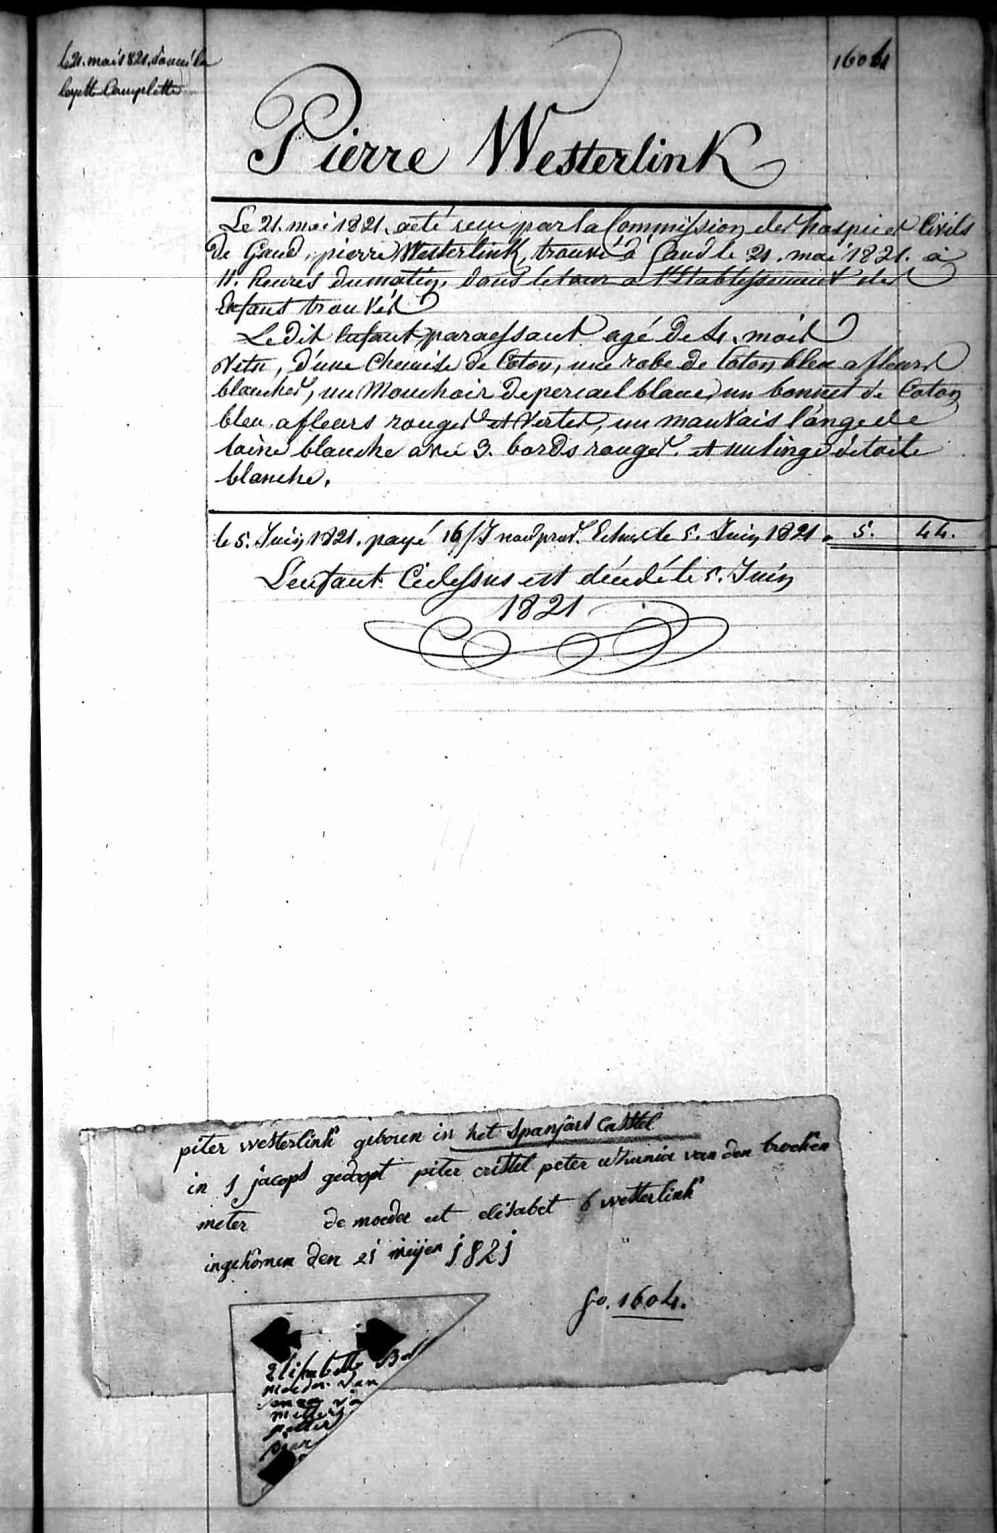 le 21. mai 1821. donné la
layette Complette
1604
Pierre Westerlink
Le 21. mai 1821. a été reçu par la Commission des hospices Civils
de Gand, pierre Westerlink, trouvé à Gand le 21. mai 1821. à
11. heures du matin, dans le tour a l'Etablissement des
Enfans trouvés
Le dit Enfant paraissant agé de 4. mois
Vetu, d'une Chemise de Coton, une robe de Coton bleu a fleurs
blanches, un Mouchoir de percail blanc, un bonnet de Coton
bleu a fleurs rouges et Vertes, un mauvais lange de
laine blanche avec 3. bords rouges. et un linge de toile
blanche.
le 5. Juin 1821. payé 16/J Echus le 5. Juin 1821. 5. 44.
L'enfant Cidessus est décédé le 5. Juin
1821
piter westerlink geboren in het Spanjaers Casttel
in s jacops gedopt piter cristtel peter van den broeken
meter de moeder elisabet westerlink
ingekomen den 21 meijen 1821
fo. 1604.
Elisabette
moeder van